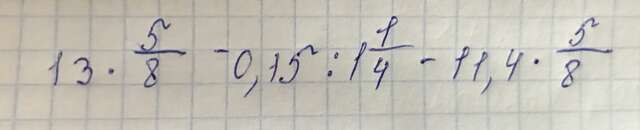 13 · 5/8 - 0,15 : 1 1/4 - 11,4 · 5/8